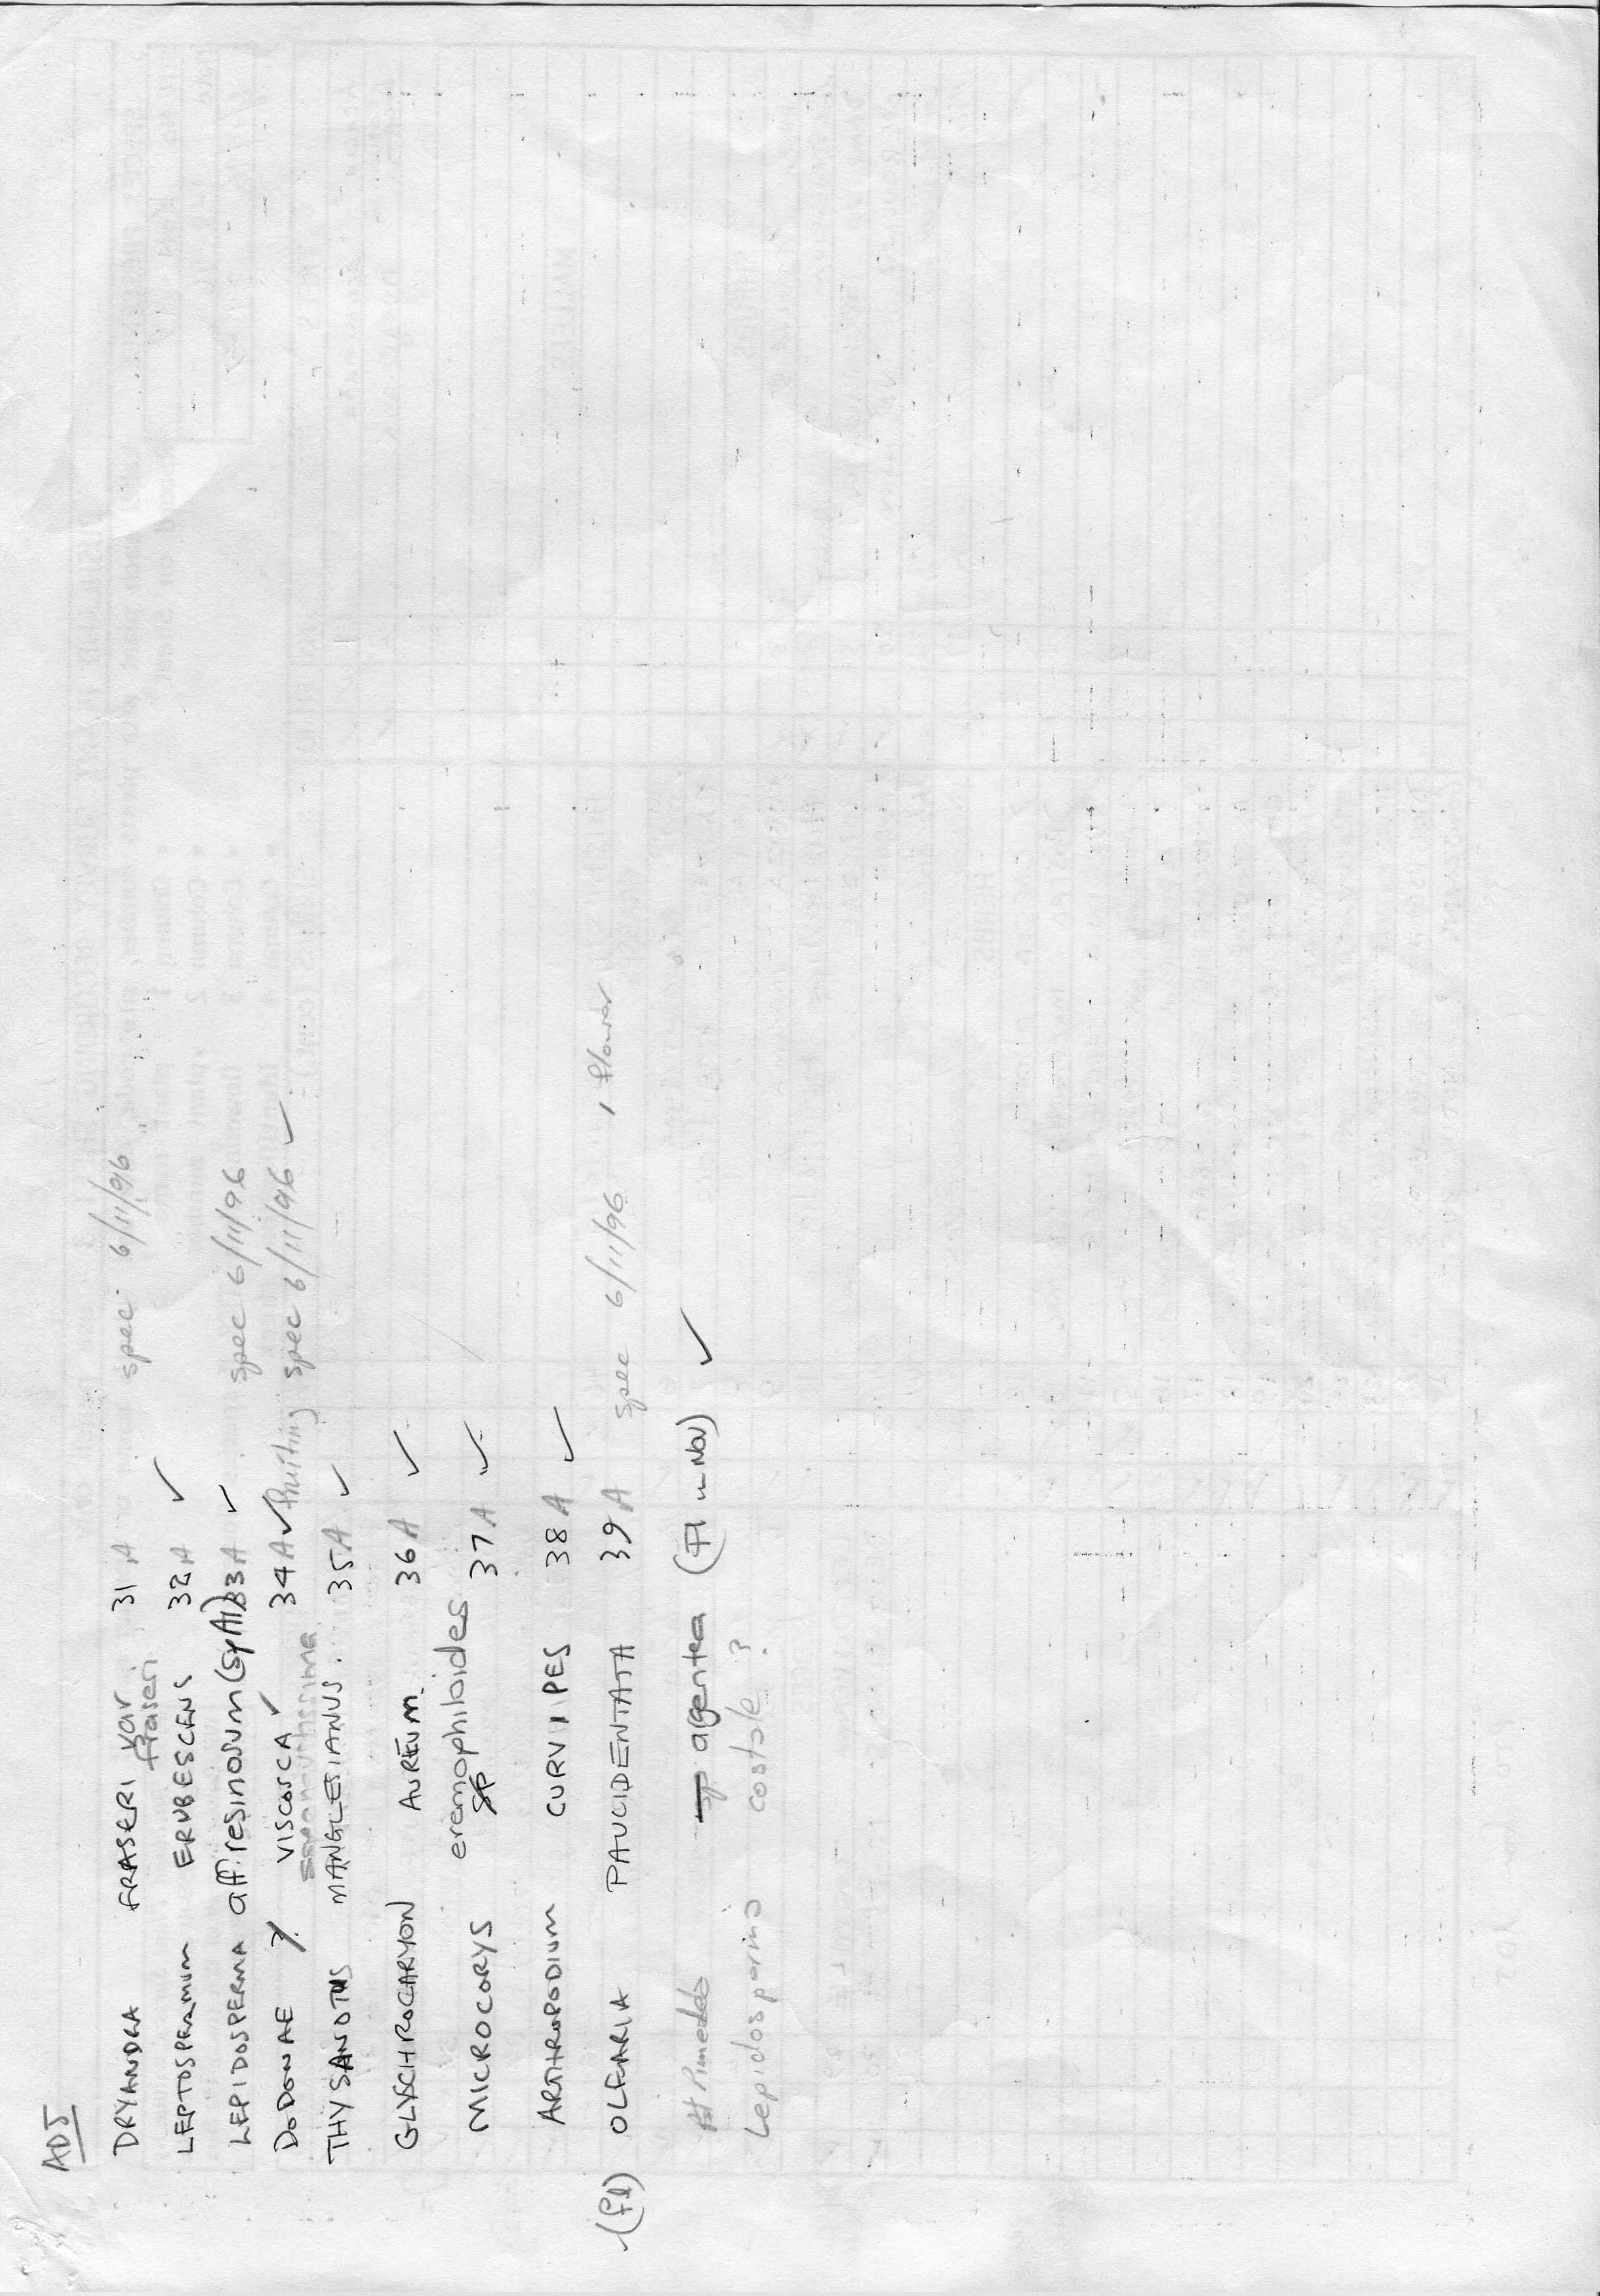 ADJ
DRYANDRA FRASERI var fraseri 31 A spec 6/11/96
LEPTOSPERMUM ERUBESCENS 32 A ✓
LEPIDOSPERMA aff. resinosum (sp A1) 33 A ✓ spec 6/11/96
DODONAE VISCOSCA ✓ 34 A ✓ fruiting spec 6/11/96 ✓
THYSANOTUS MANGLESIANUS. 35 A ✓
GLYSCHROCARYON AUREUM. 36 A ✓
MICROCORYS eremophiloides 37 A ✓
ARTHROPODIUM CURVIPES 38 A ✓
(fl) OLEARIA PAUCIDENTATA 39 A spec 6/11/96 1 flower
Pimelea argentea (Fl in Nov) ✓
Lepidosperma costale ?